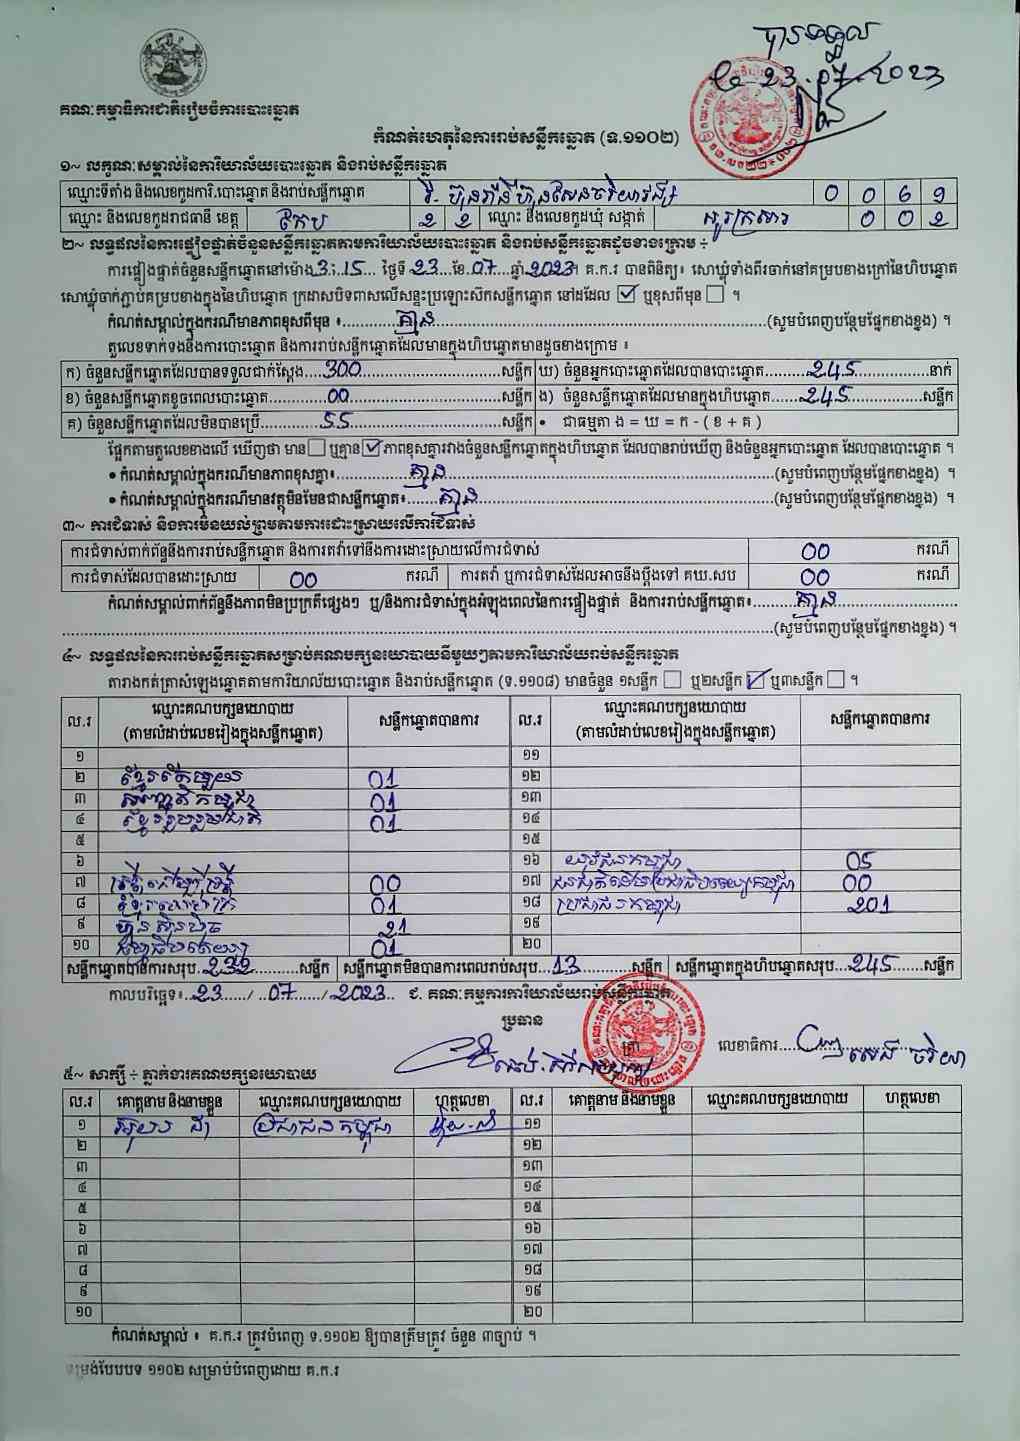 បានទទួល
ថ្ងៃ 23.07.2023
គណៈកម្មាធិការជាតិរៀបចំការបោះឆ្នោត
កំណត់ហេតុនៃការរាប់សន្លឹកឆ្នោត (ទ.១១០២)
១~ លក្ខណៈសម្គាល់នៃការិយាល័យបោះឆ្នោត និងរាប់សន្លឹកឆ្នោត
ឈ្មោះទីតាំង និងលេខកូដការិ.បោះឆ្នោត និងរាប់សន្លឹកឆ្នោត វិ. ហ៊ុនរ៉ានី ហ៊ុនសែន 0 0 6 9
ឈ្មោះ និងលេខកូដរាជធានី ខេត្ត កែប 2 2 ឈ្មោះ និងលេខកូដឃុំ សង្កាត់ អូរក្រសារ 0 0 2
២~ លទ្ធផលនៃការផ្ទៀងផ្ទាត់ចំនួនសន្លឹកឆ្នោតតាមការិយាល័យបោះឆ្នោត និងរាប់សន្លឹកឆ្នោតដូចខាងក្រោម ÷
ការផ្ទៀងផ្ទាត់ចំនួនសន្លឹកឆ្នោតនៅម៉ោង 3:15 ថ្ងៃទី 23 ខែ 07 ឆ្នាំ 2023។ គ.ក.រ បានពិនិត្យ៖ សោឃ្លុំទាំងពីរចាក់នៅគម្របខាងក្រៅនៃហិបឆ្នោត
សោឃ្លុំចាក់ភ្ជាប់គម្របខាងក្នុងនៃហិបឆ្នោត ក្រដាសបិទពាសលើសន្ទះប្រឡោះសឹកសន្លឹកឆ្នោត នៅដដែល ☑ ឬខុសពីមុន ☐ ។
កំណត់សម្គាល់ក្នុងករណីមានភាពខុសពីមុន ៖ គ្មាន (សូមបំពេញបន្ថែមផ្នែកខាងខ្នង) ។
តួលេខទាក់ទងនឹងការបោះឆ្នោត និងការរាប់សន្លឹកឆ្នោតដែលមានក្នុងហិបឆ្នោតមានដូចខាងក្រោម ៖
ក) ចំនួនសន្លឹកឆ្នោតដែលបានទទួលជាក់ស្តែង 300 សន្លឹក ឃ) ចំនួនអ្នកបោះឆ្នោតដែលបានបោះឆ្នោត 245 នាក់
ខ) ចំនួនសន្លឹកឆ្នោតខូចពេលបោះឆ្នោត 00 សន្លឹក ង) ចំនួនសន្លឹកឆ្នោតដែលមានក្នុងហិបឆ្នោត 245 សន្លឹក
គ) ចំនួនសន្លឹកឆ្នោតដែលមិនបានប្រើ 55 សន្លឹក • ជាធម្មតា ង = ឃ = ក - ( ខ + គ )
ផ្អែកតាមតួលេខខាងលើ ឃើញថា មាន ☐ ឬគ្មាន ☑ ភាពខុសគ្នារវាងចំនួនសន្លឹកឆ្នោតក្នុងហិបឆ្នោត ដែលបានរាប់ឃើញ និងចំនួនអ្នកបោះឆ្នោត ដែលបានបោះឆ្នោត ។
• កំណត់សម្គាល់ក្នុងករណីមានភាពខុសគ្នា៖ គ្មាន (សូមបំពេញបន្ថែមផ្នែកខាងខ្នង) ។
• កំណត់សម្គាល់ក្នុងករណីមានវត្ថុមិនមែនជាសន្លឹកឆ្នោត៖ គ្មាន (សូមបំពេញបន្ថែមផ្នែកខាងខ្នង) ។
៣~ ការជំទាស់ និងការមិនយល់ព្រមតាមការដោះស្រាយលើការជំទាស់
ការជំទាស់ពាក់ព័ន្ធនឹងការរាប់សន្លឹកឆ្នោត និងការតវ៉ាទៅនឹងការដោះស្រាយលើការជំទាស់ 00 ករណី
ការជំទាស់ដែលបានដោះស្រាយ 00 ករណី ការតវ៉ា ឬការជំទាស់ដែលអាចនឹងប្តឹងទៅ គឃ.សប 00 ករណី
កំណត់សម្គាល់ពាក់ព័ន្ធនឹងភាពមិនប្រក្រតីផ្សេងៗ ឬ/និងការជំទាស់ក្នុងអំឡុងពេលនៃការផ្ទៀងផ្ទាត់ និងការរាប់សន្លឹកឆ្នោត៖ គ្មាន
(សូមបំពេញបន្ថែមផ្នែកខាងខ្នង) ។
៤~ លទ្ធផលនៃការរាប់សន្លឹកឆ្នោតសម្រាប់គណបក្សនយោបាយនីមួយៗតាមការិយាល័យរាប់សន្លឹកឆ្នោត
តារាងកត់ត្រាសំឡេងឆ្នោតតាមការិយាល័យបោះឆ្នោត និងរាប់សន្លឹកឆ្នោត (ទ.១១០៨) មានចំនួន ១សន្លឹក ☐ ឬ២សន្លឹក ☑ ឬ៣សន្លឹក ☐ ។
ល.រ ឈ្មោះគណបក្សនយោបាយ (តាមលំដាប់លេខរៀងក្នុងសន្លឹកឆ្នោត) សន្លឹកឆ្នោតបានការ ល.រ ឈ្មោះគណបក្សនយោបាយ (តាមលំដាប់លេខរៀងក្នុងសន្លឹកឆ្នោត) សន្លឹកឆ្នោតបានការ
១ ១១
២ ខ្មែរតែមួយ 01 ១២
៣ សញ្ជាតិកម្ពុជា 01 ១៣
៤ ខ្មែររួបរួមជាតិ 01 ១៤
៥ ១៥
៦ ១៦ យុវជនកម្ពុជា 05
៧ ស្ត្រីដើម្បីស្ត្រី 00 ១៧ ជនជាតិដើមប្រជាធិបតេយ្យកម្ពុជា 00
៨ 01 ១៨ ប្រជាជនកម្ពុជា 201
៩ ហ្វ៊ុនស៊ិនប៉ិច 21 ១៩
១០ ធម្មាធិបតេយ្យ 01 ២០
សន្លឹកឆ្នោតបានការសរុប 232 សន្លឹក សន្លឹកឆ្នោតមិនបានការពេលរាប់សរុប 13 សន្លឹក សន្លឹកឆ្នោតក្នុងហិបឆ្នោតសរុប 245 សន្លឹក
កាលបរិច្ឆេទ៖ 23 / 07 / 2023 ជ. គណៈកម្មការការិយាល័យរាប់សន្លឹកឆ្នោត
ប្រធាន
ត្រា លេខាធិការ សេង ចរិយា
៥~ សាក្សី ÷ ភ្នាក់ងារគណបក្សនយោបាយ
ល.រ គោត្តនាម និងនាមខ្លួន ឈ្មោះគណបក្សនយោបាយ ហត្ថលេខា ល.រ គោត្តនាម និងនាមខ្លួន ឈ្មោះគណបក្សនយោបាយ ហត្ថលេខា
១ ប្រជាជនកម្ពុជា ១១
២ ១២
៣ ១៣
៤ ១៤
៥ ១៥
៦ ១៦
៧ ១៧
៨ ១៨
៩ ១៩
១០ ២០
កំណត់សម្គាល់ ៖ គ.ក.រ ត្រូវបំពេញ ទ.១១០២ ឱ្យបានត្រឹមត្រូវ ចំនួន ៣ច្បាប់ ។
ទម្រង់បែបបទ ១១០២ សម្រាប់បំពេញដោយ គ.ក.រ